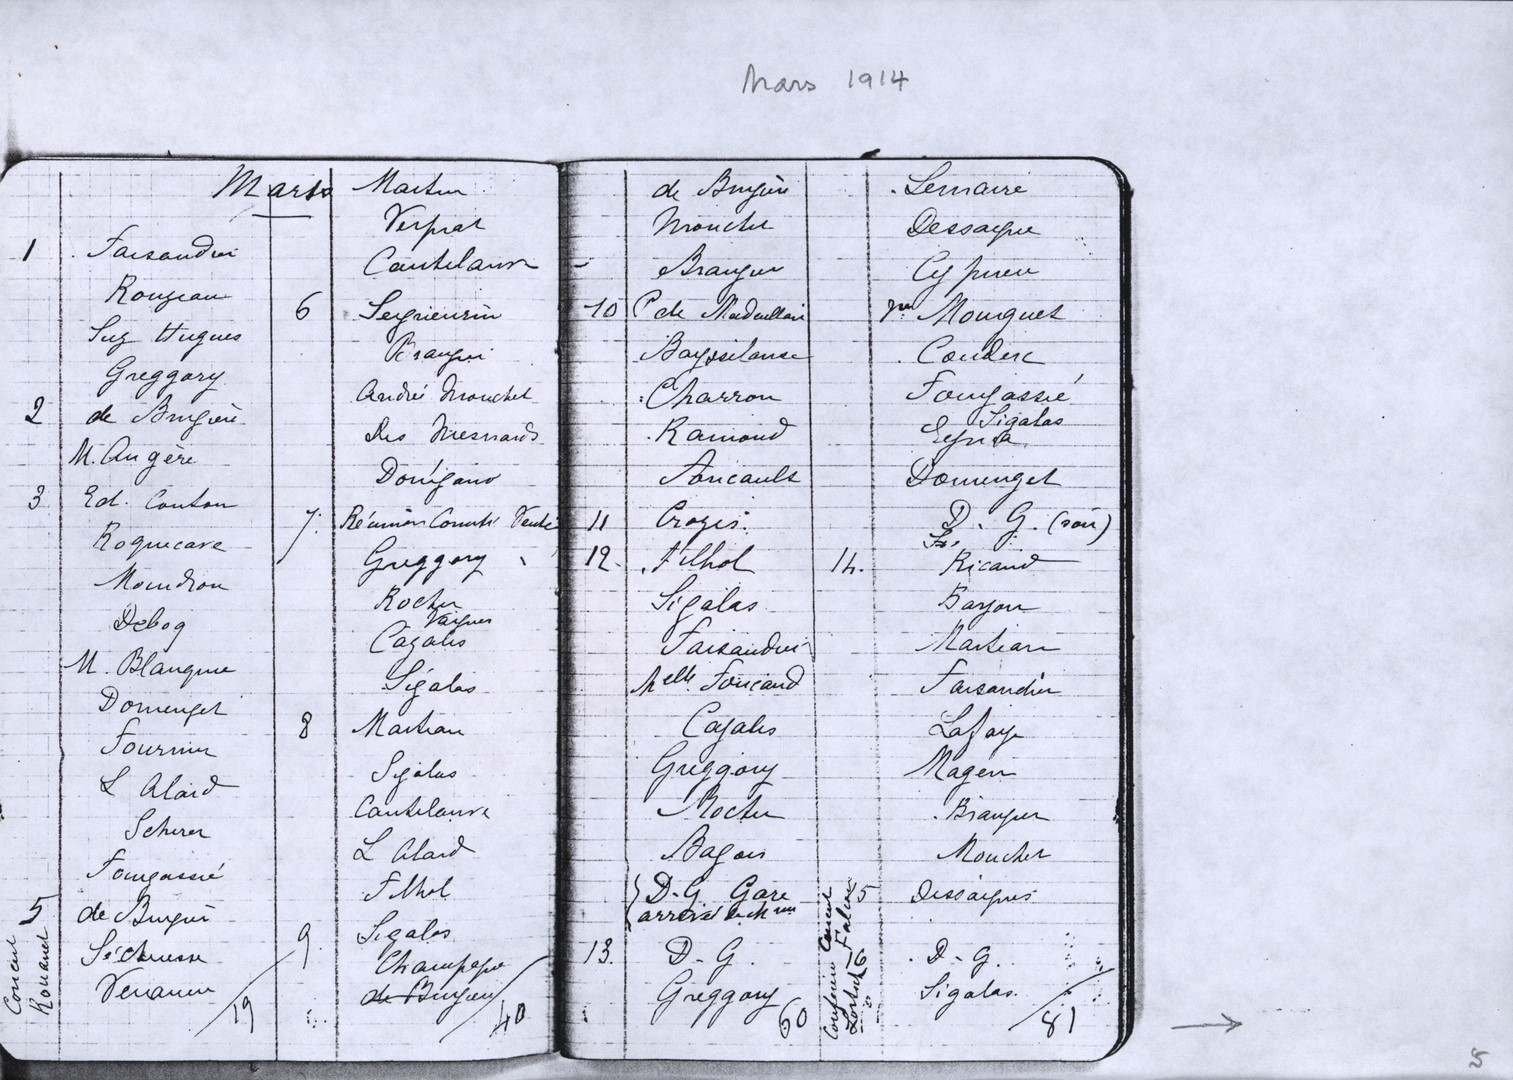 Mars 1914
Mars
1 Faisandier
Rouzeau
Suz Hugues
Greggory
2 de Brugière
M. Augère
3 Ed. Couton
Roquecave
Moindron
Debog
M. Blanquie
Domenget
Fournier
L Alard
Scherer
Fougassié
5 de Brugière
Concert Rouanet
19
Martin
Verprat
Cantelauve
6 Seigneurin
Branger
André Mouchet
Des Mesnards
Donégano
7. Réunion Comité Vente
Greggory
Rocher
Vargues
Cazalis
Sigalas
8 Martian
Sigalas
Cantelauve
L Alard
Filhol
9 Sigalas
de Brugière
40
de Brugière
Mouchet
Branger
10
Bayssilance
Charron
Ramond
Foucault
11 Crozis.
12. Filhol
Sigalas
Faisandier
Melle Foucaud
Cazalis
Greggory
Rocher
Bagois
D-G Gare
13. D-G.
Greggory
60
Lemaire
Dessaigne
Cyprien
Mouquet
Couderc
Fougassié
Sigalas
Domenget
D. G. (soir)
14. Ricaud
Bayon
Martian
Faisandier
Lafaye
Magen
Branger
Mouchet
15 Dessaignes
16 D-G.
Sigalas.
81
5